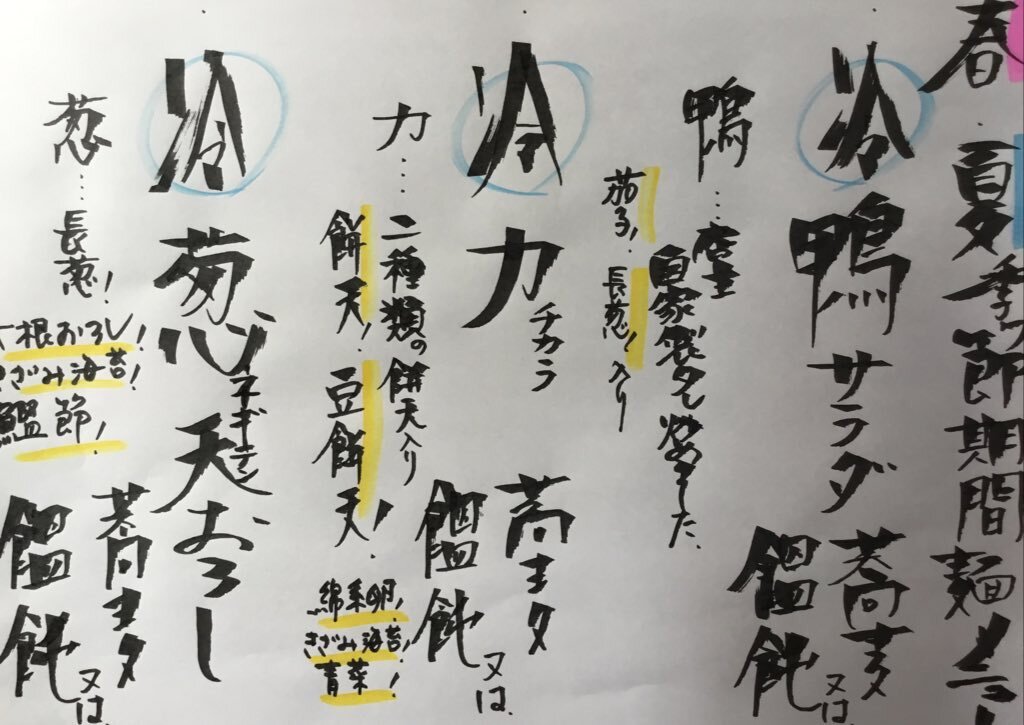 春・夏季節期間麺メニュー
冷鴨サラダ蕎麦又は
饂飩
鴨…
自家製タレ
茄子!長葱!入り
冷力チカラ
蕎麦又は
饂飩
力…二種類の餅天入り
餅天!豆餅天!
錦糸卵!
きざみ海苔!
青菜!
冷葱ネギテン天おろし
蕎麦又は
饂飩
葱…長葱!
根おろし!
きざみ海苔!
鰹節!